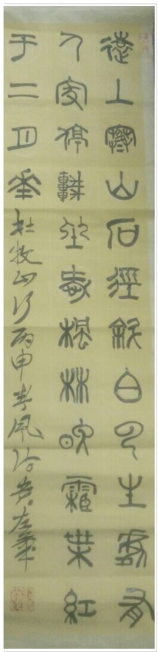 遠上寒山石徑斜白云生處有
人家停車坐愛楓林晚霜葉紅
于二月華杜牧山行丙申春風